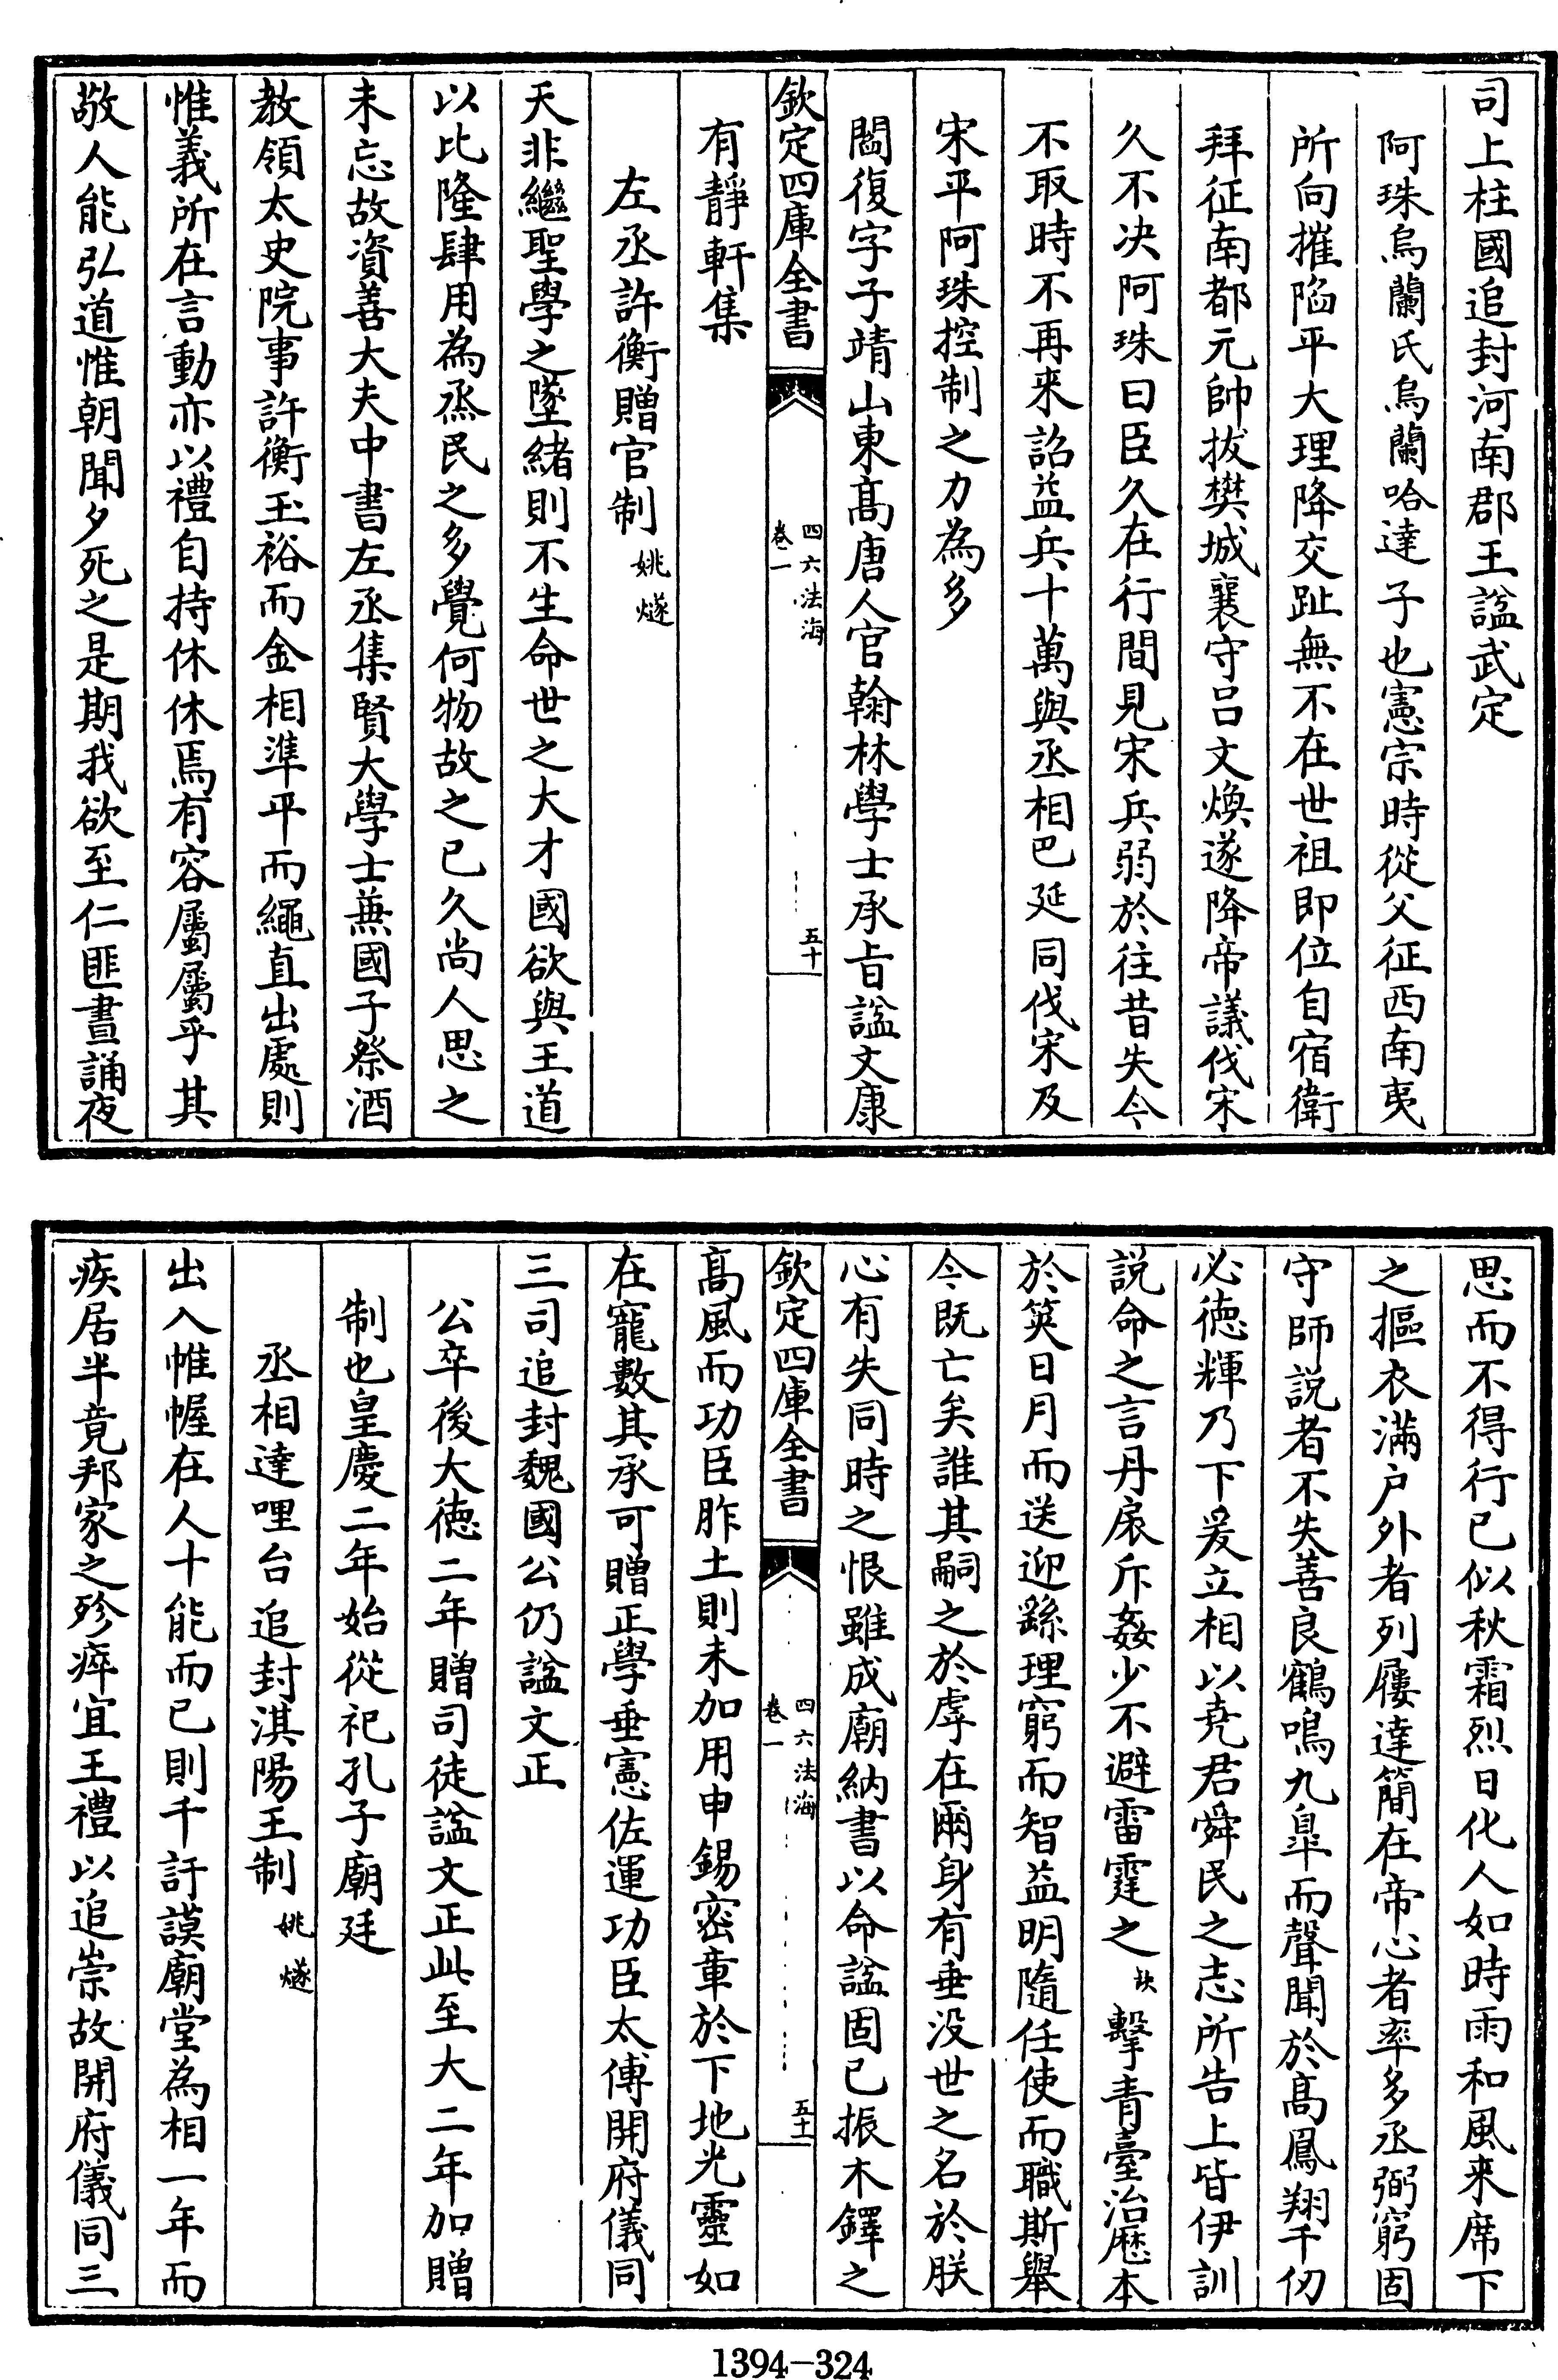 司上柱國追封河南郡王諡武定
阿珠烏蘭氏烏蘭哈達子也憲宗時從父征西南夷
所向摧陷平大理降交趾無不在世祖即位自宿衛
拜征南都元帥拔樊城襄守呂文煥遂降帝議伐宋
久不决阿珠曰臣久在行間見宋兵弱於往昔失今
不取時不再来詔益兵十萬與丞相巴延同伐宋及
宋平阿珠控制之力為多
閻復字子靖山東髙唐人官翰林學士承旨諡文康
欽定四庫全書
四六法海
卷一
五十
有靜軒集
左丞許衡贈官制 姚燧
天非繼聖學之墜緒則不生命世之大才國欲與王道
以比隆肆用為烝民之多覺何物故之已久尚人思之
未忘故資善大夫中書左丞集賢大學士蕪國子祭酒
教領太史院事許衡玉裕而金相準平而繩直出處則
惟義所在言動亦以禮自持休休焉有容屬屬乎其
敬人能弘道惟朝聞夕死之是期我欲至仁匪晝誦夜
思而不得行已似秋霜烈日化人如時雨和風来席下
之摳衣滿户外者列屨達簡在帝心者率多丞弼窮固
守師説者不失善良鶴鳴九臯而聲聞於髙鳳翔千仞
必徳輝乃下爰立相以堯君舜民之志所告上皆伊訓
説命之言丹扆斥姦少不避雷霆之 缺 擊青臺治厯本
於筴日月而送迎繇理窮而智益明隨任使而職斯舉
今既亡矣誰其嗣之於虖在爾身有垂没世之名於朕
心有失同時之恨雖成廟納書以命諡固已振木鐸之
欽定四庫全書
四六法海
卷一
五十一
髙風而功臣胙土則未加用申錫密章於下地光靈如
在寵數其承可贈正學垂憲佐運功臣太傅開府儀同
三司追封魏國公仍諡文正
公卒後大徳二年贈司徒諡文正此至大二年加贈
制也皇慶二年始從祀孔子廟廷
丞相達哩台追封淇陽王制 姚燧
出入帷幄在人十能而已則千訏謨廟堂為相一年而
疾居半竟邦家之殄瘁宜王禮以追崇故開府儀同三
1394-324